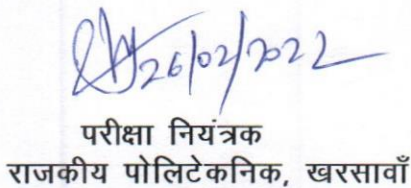 26/02/2022
परीक्षा नियंत्रक
राजकीय पोलिटेकनिक, खरसावाँ